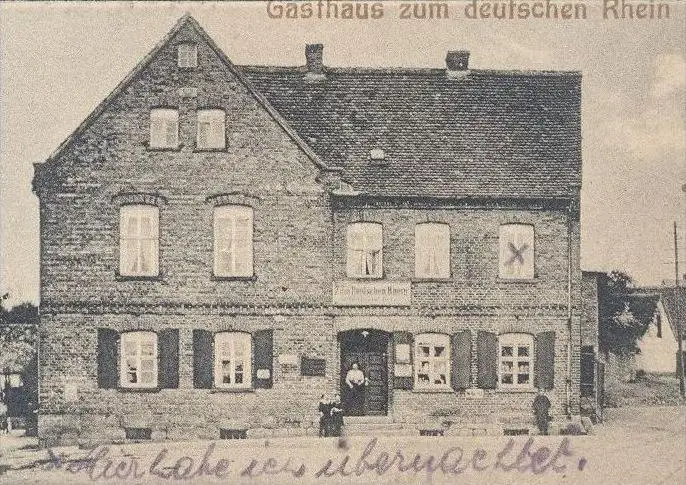 Gasthaus zum deutschen Rhein
Zum deutschen Rhein
x
x Hier habe ich übernachtet.